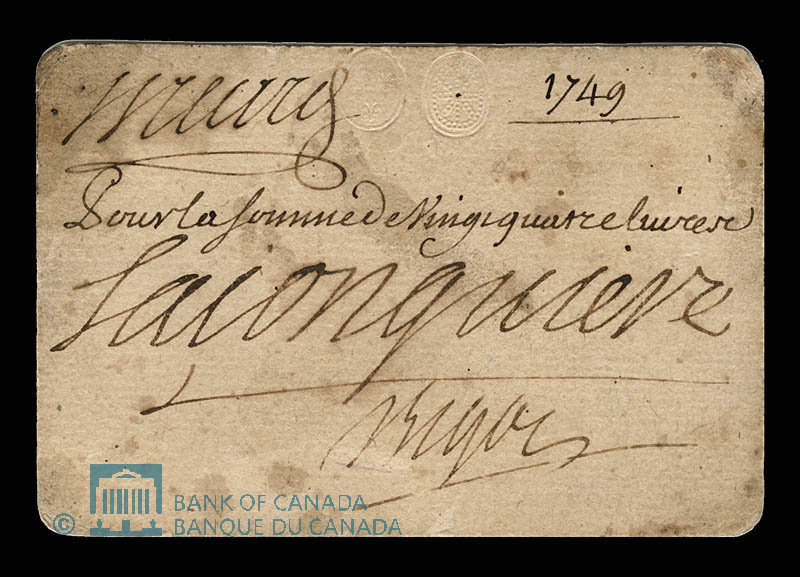 1749
Pour la somme de Vingt quatre livres
Lajonquiere
Bigot
BANK OF CANADA
© BANQUE DU CANADA